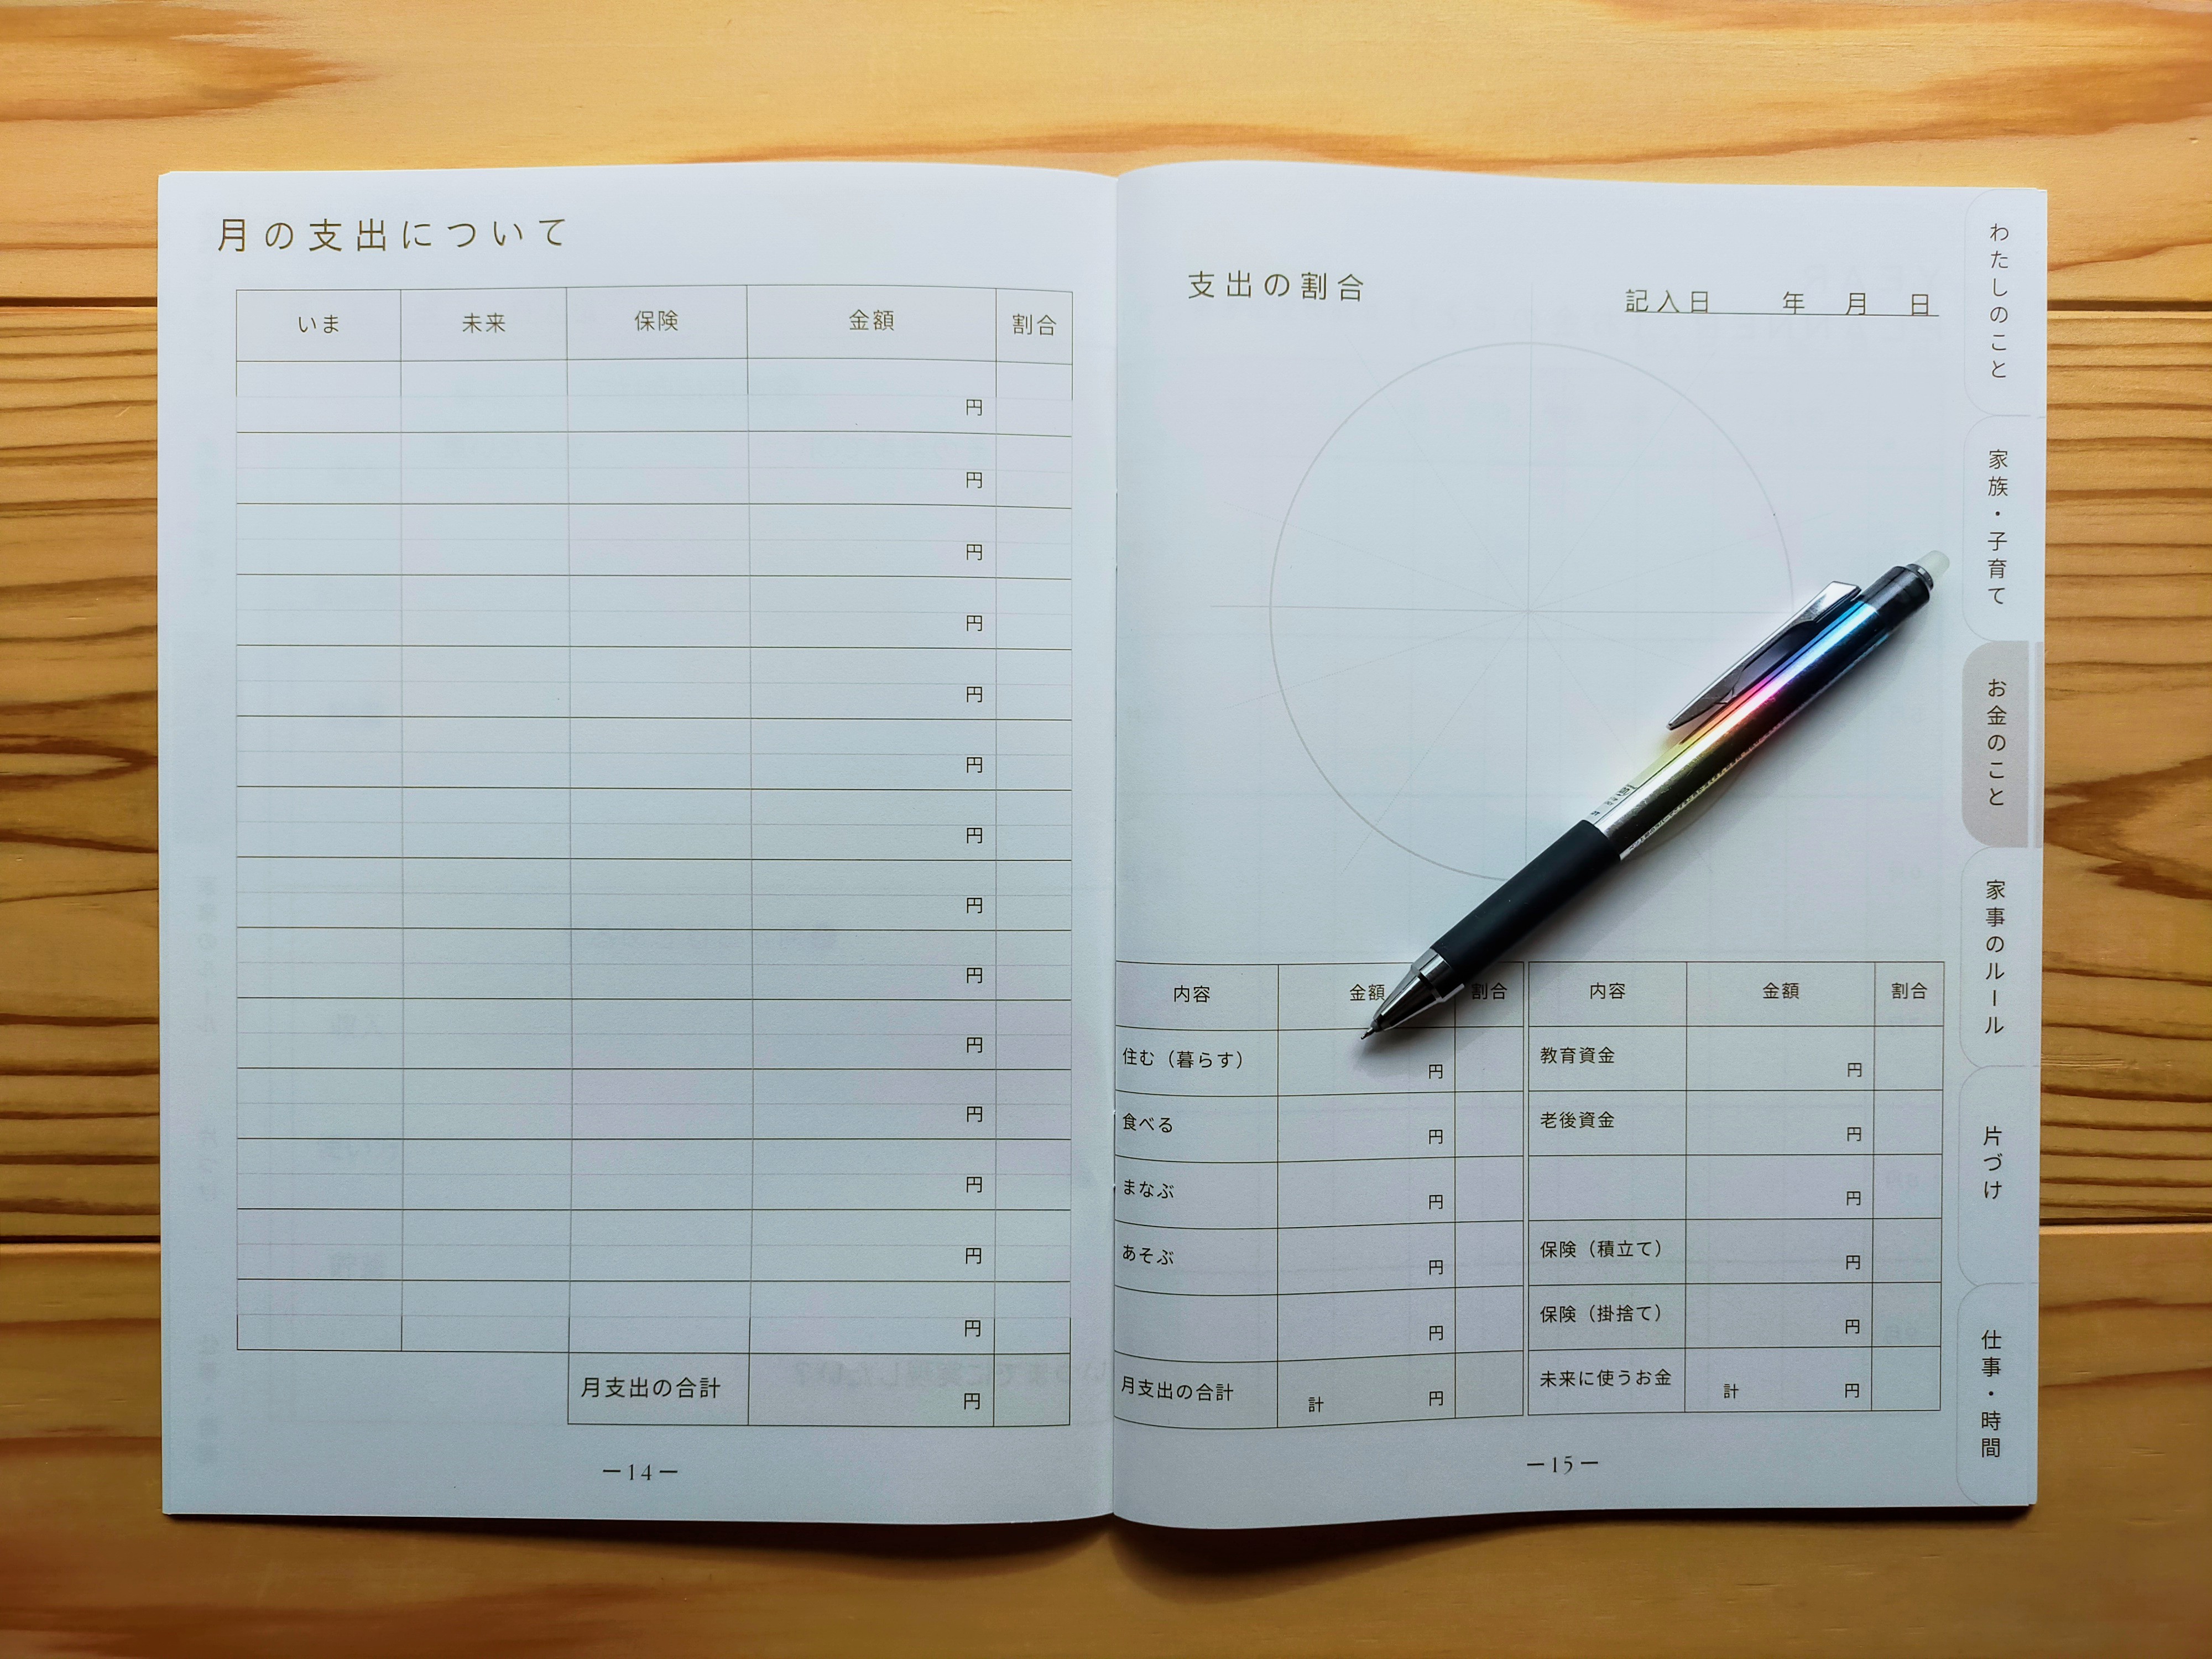 月の支出について
いま 未来 保険 金額 割合
円
円
円
円
円
円
円
円
円
円
円
円
円
円
月支出の合計 円
ー14ー
支出の割合
記入日 年 月 日
内容 金額 割合 内容 金額 割合
住む（暮らす） 円 教育資金 円
食べる 円 老後資金 円
まなぶ 円 円
あそぶ 円 保険（積立て） 円
円 保険（掛捨て） 円
月支出の合計 計 円 未来に使うお金 計 円
ー15ー
わたしのこと
家族・子育て
お金のこと
家事のルール
片づけ
仕事・時間